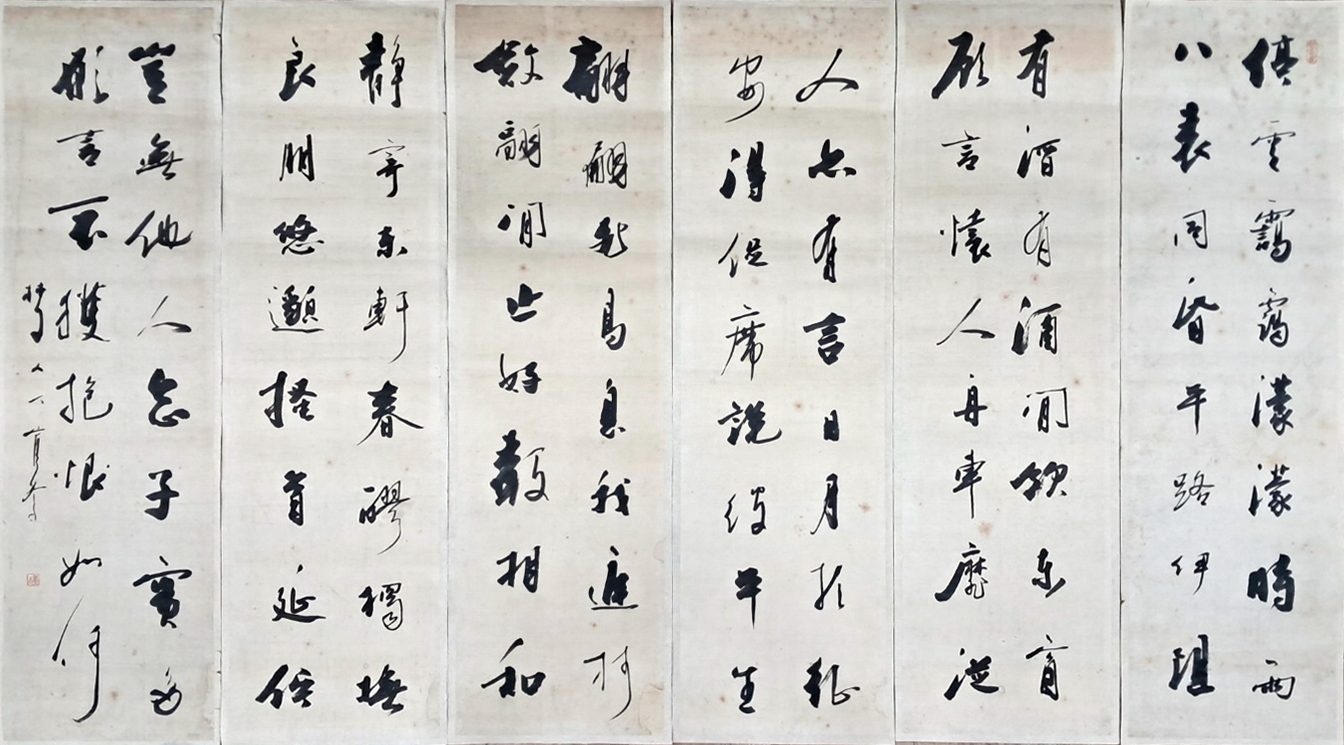 停雲靄靄濛濛時雨
八表同昏平路伊阻
有酒有酒閒飲東
願言懷人舟車靡從
人亦有言日月於征
安得促席說彼平生
翩翩飛鳥息我庭柯
斂翮閒止好聲相和
靜寄東軒春醪獨撫
良朋悠邈搔首延佇
豈無他人念子實多
願言不獲抱恨如何